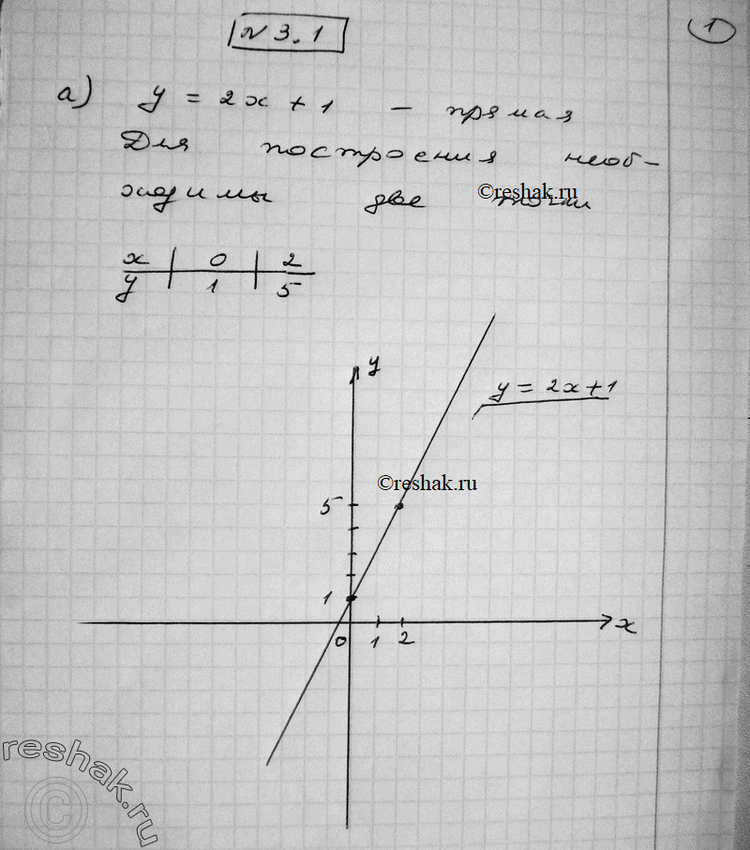 № 3.1
1
а) y = 2x + 1 – прямая
Для построения необ-
ходимы две точки
©reshak.ru
x | 0 | 2
y | 1 | 5
y
y = 2x+1
©reshak.ru
5
1
0 1 2 x
reshak.ru
©